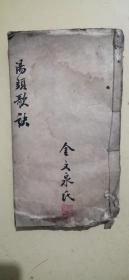 湯頭歌訣
金文泉氏